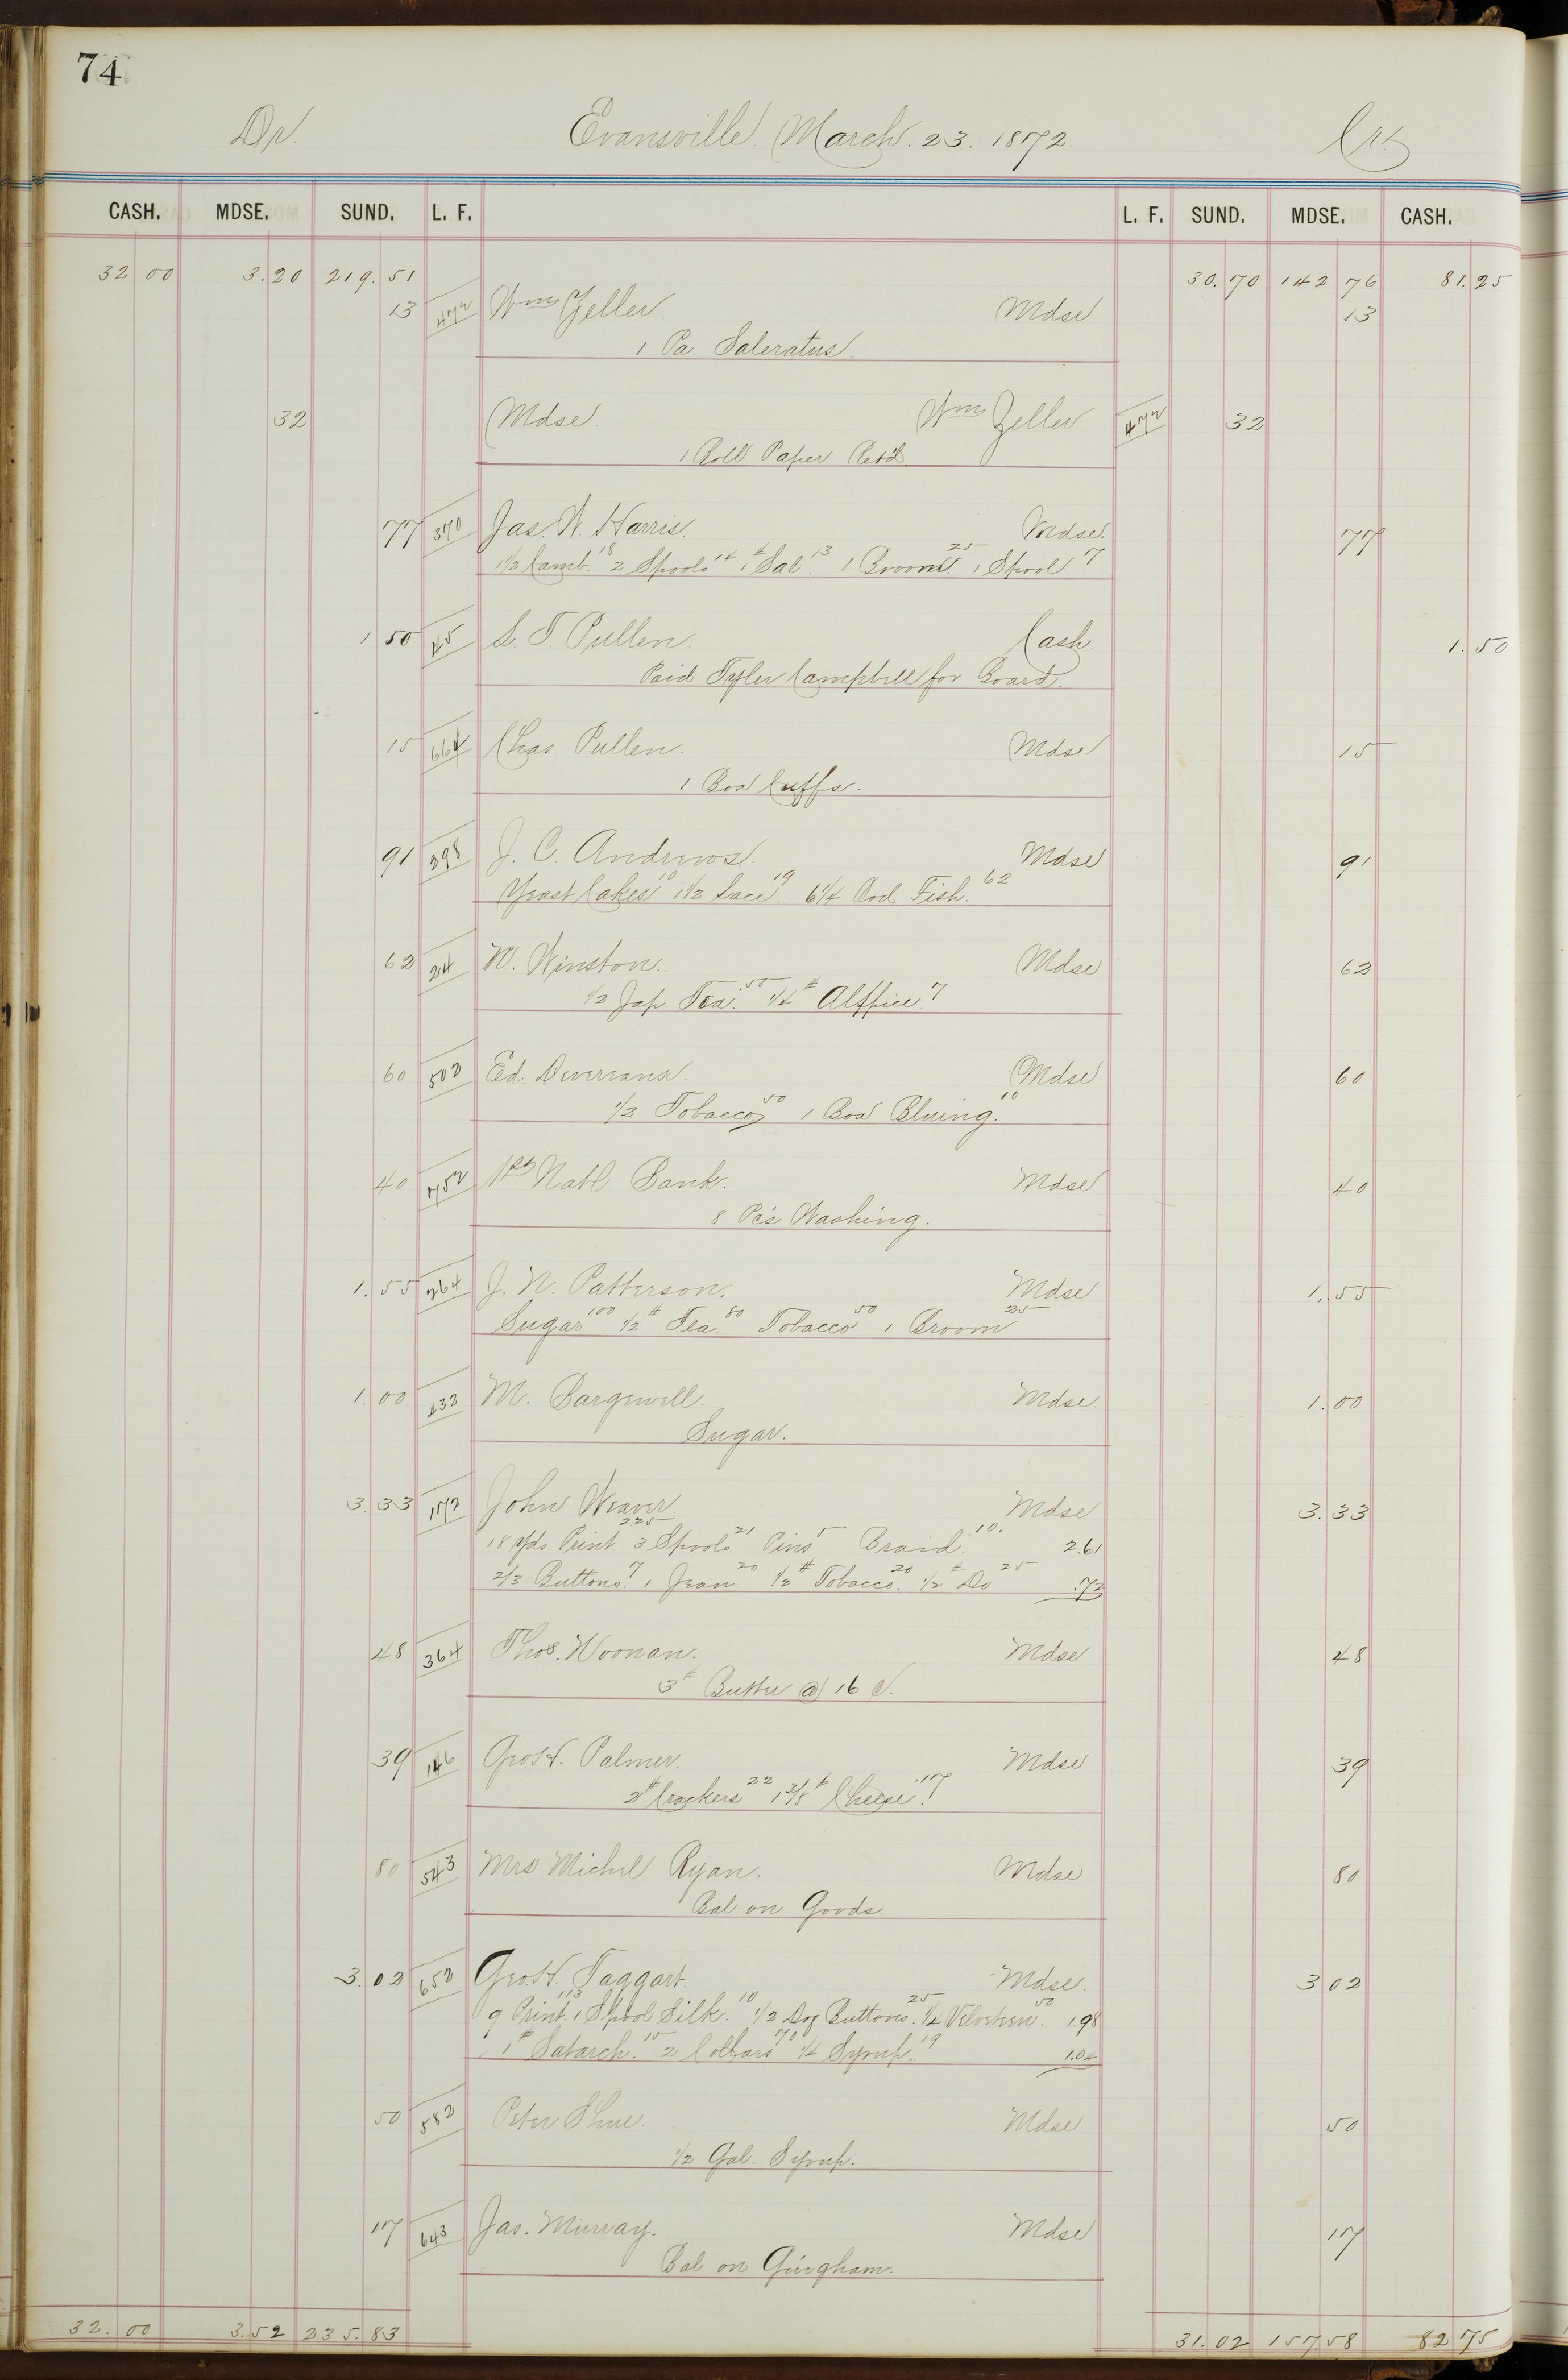 74
Dr. Evansville March. 23. 1872. Cr.
CASH. MDSE. SUND. L. F. L. F. SUND. MDSE. CASH.
32 00 3.20 219.51 30.70 142 76 81.25
13 472 Wm Zeller Mdse 13
1 Pa. Saleratus
32 Mdse Wm Zeller 472 32
1 Roll Paper Retd.
77 370 Jas. W. Harris. Mdse. 77
1/2 Camb. 18 2 Spools 14 1# Sal. 13 1 Broom 25 1 Spool 7
1 50 45 S. T. Pullen. Cash. 1.50
Paid Tyler Campbell for Board.
15 664 Chas Pullen. Mdse 15
1 Box Cuffs.
91 298 J. C. Andrews. Mdse 91
Yeast Cakes 10 1 1/2 Lace 19 6 1/4 Cod Fish. 62
62 24 W. Winston. Mdse 62
1/2 Jap Tea. 55 1/4# Allspice. 7
60 502 Ed. Devereaux. Mdse 60
1/2 Tobacco 50 1 Box Bluing. 10
40 752 1st Natl. Bank. Mdse 40
8 Pc's Washing.
1.55 264 J. N. Patterson. Mdse 1.55
Sugar 100 1/2# Tea. 80 Tobacco 50 1 Broom 25
1.00 432 M. Bargewell. Mdse 1.00
Sugar.
3.33 172 John Weaver. Mdse 3.33
18 yds. Print 225 3 Spools 21 Pins 5 Braid. 10. 2.61
2/3 Buttons. 7 1 Jean 20 1/2# Tobacco. 20 1/2# Do 25 .72
48 364 Thos. Noonan. Mdse 48
3# Butter @ 16 c.
39 146 Geo. H. Palmer. Mdse 39
2# Crackers 22 1 3/8# Cheese. 17
80 543 Mrs Michel Ryan. Mdse 80
Bal on Goods.
3.02 652 Geo. H. Taggart. Mdse. 3 02
9 Print. 113 1 Spool Silk. 10 1/2 Doz Buttons. 25 1/4 Velveteen. 50 1.98
1# Satarch. 15 2 Collars 70 1/4 Syrup. 19 1.04
50 582 Peter Shue. Mdse 50
1/2 Gal. Syrup.
17 643 Jas. Murray. Mdse 17
Bal on Gingham.
32.00 3.52 235.83 31.02 157.58 82 75